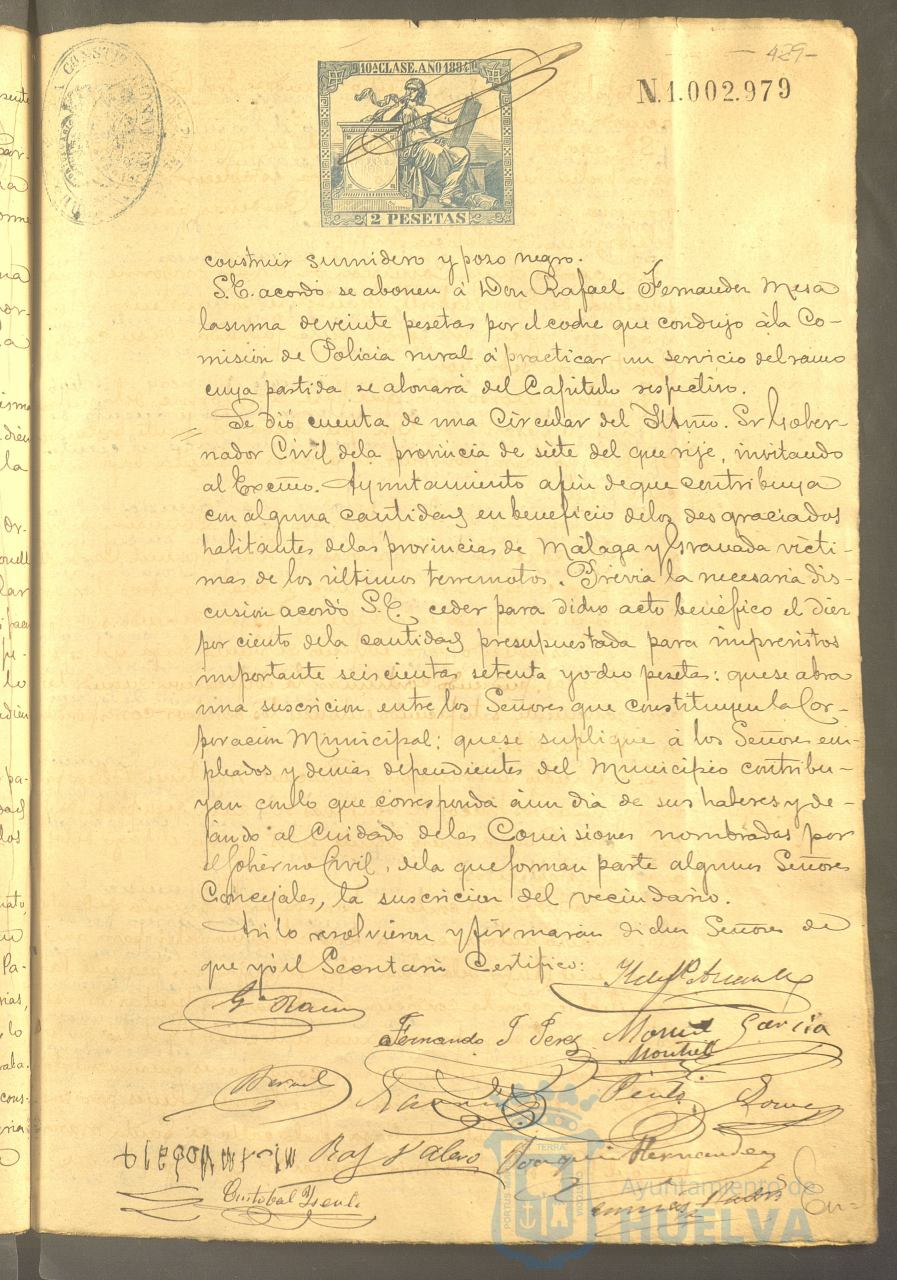 429-
10ª CLASE. AÑO 1884
N.1.002.979
2 PESETAS
construir sumidero y poso negro.
S.E. acordó se abonen á Don Rafael Fernandez Mesa
la suma de veinte pesetas por el coche que condujo á la Co-
mision de Policía rural á practicar un servicio del ramo
cuya partida se abonará del Capitulo respectivo.
Se dió cuenta de una Circular del Iltmo. Sr Gober-
nador Civil de la provincia de siete del que rije, invitando
al Excmo. Ayuntamiento a fin de que contribuya
con alguna cantidad en beneficio de los desgraciados
habitantes de las provincias de Málaga y Granada vícti-
mas de los últimos terremotos. Previa la necesaria dis-
cusion acordó S.E. ceder para dicho acto benéfico el diez
por ciento de la cantidad presupuestada para imprevistos
importante seiscientas setenta y ocho pesetas: que se abra
una suscricion entre los Señores que constituyen la Cor-
poracion Municipal: que se suplique á los Señores em-
pleados y demás dependientes del Municipio contribu-
yan con lo que corresponda á un dia de sus haberes y de-
jando al cuidado de las Comisiones nombradas por
el Gobierno Civil, de la que forman parte algunos Señores
Concejales, la suscricion del vecindario.
Asi lo resolvieron y firmaran dichos Señores de
que yo el Secretario Certifico:
Fernando J Perez
García
Bernal
Joaquin Hernandez
Cristobal
Ayuntamiento de
HUELVA